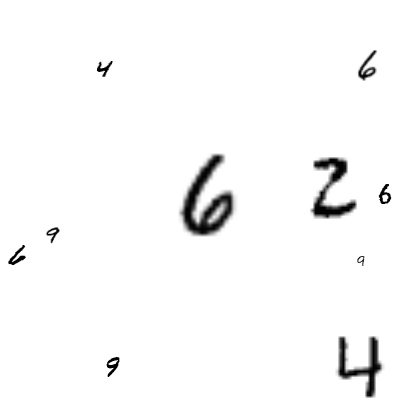 4 6
6 2 6
9
6 9
9 4